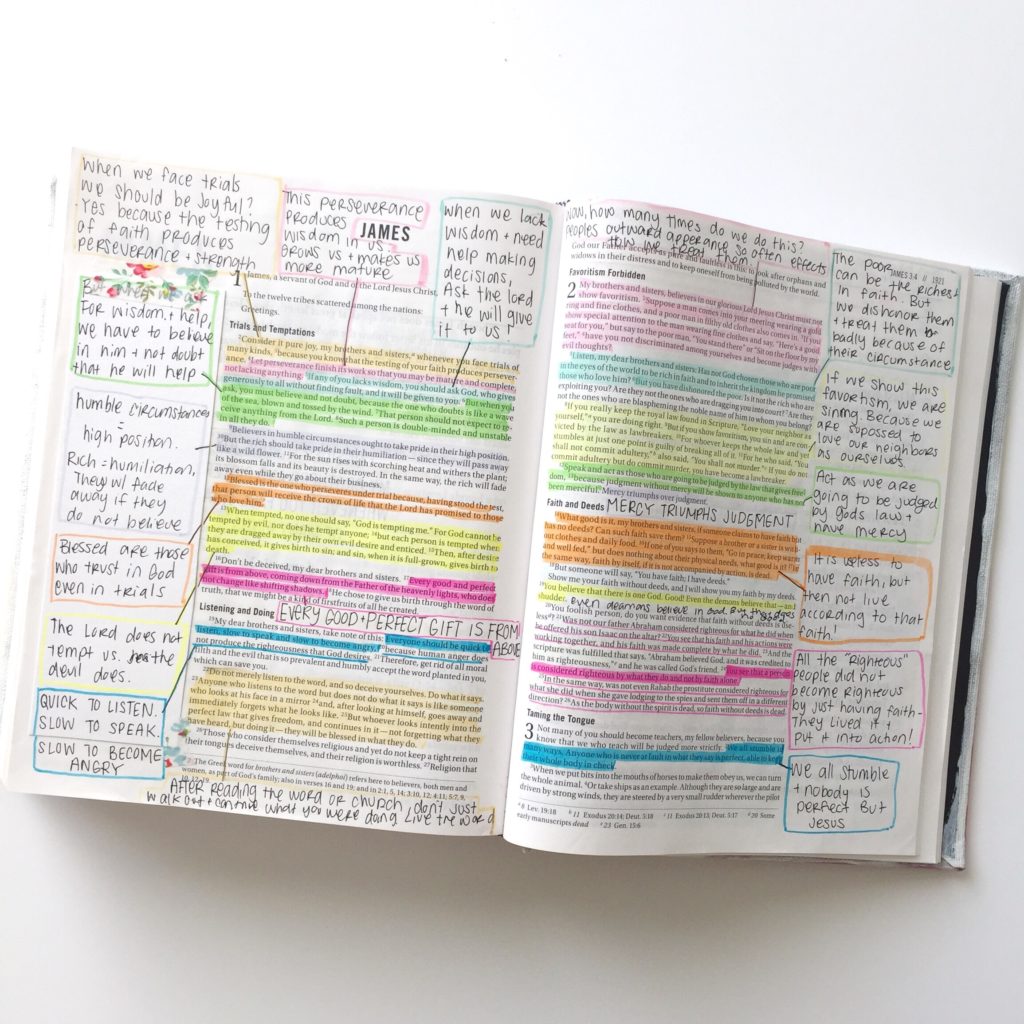 When we face trials
we should be joyful?
Yes because the testing
of faith produces
perseverance + strength
This perseverance
produces
wisdom in us
grows us + makes us
more mature
JAMES
when we lack
wisdom + need
help making
decisions,
Ask the lord
+ he will give
it to us!
But when we ask
For wisdom + help,
we have to believe
in him + not doubt
that he will help
humble circumstances
=
high position.
Rich = humiliation,
They wl fade
away if they
do not believe
Blessed are those
who trust in God
even in trials
The Lord does not
tempt us. the
devil does.
QUICK TO LISTEN.
SLOW TO SPEAK.
SLOW TO BECOME
ANGRY
1 James, a servant of God and of the Lord Jesus Christ,
To the twelve tribes scattered among the nations:
Greetings.
Trials and Temptations
2Consider it pure joy, my brothers and sisters,a whenever you face trials of
many kinds, 3because you know that the testing of your faith produces persever-
ance. 4Let perseverance finish its work so that you may be mature and complete,
not lacking anything. 5If any of you lacks wisdom, you should ask God, who gives
generously to all without finding fault, and it will be given to you. 6But when you
ask, you must believe and not doubt, because the one who doubts is like a wave
of the sea, blown and tossed by the wind. 7That person should not expect to re-
ceive anything from the Lord. 8Such a person is double-minded and unstable
in all they do.
9Believers in humble circumstances ought to take pride in their high position.
10But the rich should take pride in their humiliation — since they will pass away
like a wild flower. 11For the sun rises with scorching heat and withers the plant;
its blossom falls and its beauty is destroyed. In the same way, the rich will fade
away even while they go about their business.
12Blessed is the one who perseveres under trial because, having stood the test,
that person will receive the crown of life that the Lord has promised to those
who love him.
13When tempted, no one should say, "God is tempting me." For God cannot be
tempted by evil, nor does he tempt anyone; 14but each person is tempted when
they are dragged away by their own evil desire and enticed. 15Then, after desire
has conceived, it gives birth to sin; and sin, when it is full-grown, gives birth to
death.
16Don't be deceived, my dear brothers and sisters. 17Every good and perfect
gift is from above, coming down from the Father of the heavenly lights, who does
not change like shifting shadows. 18He chose to give us birth through the word of
truth, that we might be a kind of firstfruits of all he created.
Listening and Doing
EVERY GOOD + PERFECT GIFT IS FROM
ABOVE
19My dear brothers and sisters, take note of this: Everyone should be quick to
listen, slow to speak and slow to become angry, 20because human anger does
not produce the righteousness that God desires. 21Therefore, get rid of all moral
filth and the evil that is so prevalent and humbly accept the word planted in you,
which can save you.
22Do not merely listen to the word, and so deceive yourselves. Do what it says.
23Anyone who listens to the word but does not do what it says is like someone
who looks at his face in a mirror 24and, after looking at himself, goes away and
immediately forgets what he looks like. 25But whoever looks intently into the
perfect law that gives freedom, and continues in it — not forgetting what they
have heard, but doing it — they will be blessed in what they do.
26Those who consider themselves religious and yet do not keep a tight rein on
their tongues deceive themselves, and their religion is worthless. 27Religion that
The Greek word for brothers and sisters (adelphoi) refers here to believers, both men and
women, as part of God's family; also in verses 16 and 19; and in 2:1, 5, 14; 3:10, 12; 4:11; 5:7, 9,
AFTER reading the word or church, don't just
walk out + continue what you were doing. Live the word
Wow, how many times do we do this?
Peoples outward apperance so often effects
how we treat them
JAMES 3:4 // 1921
God our Father accepts as pure and faultless is this: to look after orphans and
widows in their distress and to keep oneself from being polluted by the world.
Favoritism Forbidden
2 My brothers and sisters, believers in our glorious Lord Jesus Christ must not
show favoritism. 2Suppose a man comes into your meeting wearing a gold
ring and fine clothes, and a poor man in filthy old clothes also comes in. 3If you
show special attention to the man wearing fine clothes and say, "Here's a good
seat for you," but say to the poor man, "You stand there" or "Sit on the floor by my
feet," 4have you not discriminated among yourselves and become judges with
evil thoughts?
5Listen, my dear brothers and sisters: Has not God chosen those who are poor
in the eyes of the world to be rich in faith and to inherit the kingdom he promised
those who love him? 6But you have dishonored the poor. Is it not the rich who are
exploiting you? Are they not the ones who are dragging you into court? 7Are they
not the ones who are blaspheming the noble name of him to whom you belong?
8If you really keep the royal law found in Scripture, "Love your neighbor as
yourself," you are doing right. 9But if you show favoritism, you sin and are con-
victed by the law as lawbreakers. 10For whoever keeps the whole law and yet
stumbles at just one point is guilty of breaking all of it. 11For he who said, "You
shall not commit adultery," also said, "You shall not murder." If you do not
commit adultery but do commit murder, you have become a lawbreaker.
12Speak and act as those who are going to be judged by the law that gives free-
dom, 13because judgment without mercy will be shown to anyone who has not
been merciful. Mercy triumphs over judgment.
Faith and Deeds
MERCY TRIUMPHS JUDGMENT
14What good is it, my brothers and sisters, if someone claims to have faith but
has no deeds? Can such faith save them? 15Suppose a brother or a sister is with-
out clothes and daily food. 16If one of you says to them, "Go in peace; keep warm
and well fed," but does nothing about their physical needs, what good is it? 17In
the same way, faith by itself, if it is not accompanied by action, is dead.
18But someone will say, "You have faith; I have deeds."
Show me your faith without deeds, and I will show you my faith by my deeds.
19You believe that there is one God. Good! Even the demons believe that — and
shudder.
even deamons believe in God. But
20You foolish person, do you want evidence that faith without deeds is use-
less? 21Was not our father Abraham considered righteous for what he did when
he offered his son Isaac on the altar? 22You see that his faith and his actions were
working together, and his faith was made complete by what he did. 23And the
scripture was fulfilled that says, "Abraham believed God, and it was credited to
him as righteousness," and he was called God's friend. 24You see that a person
is considered righteous by what they do and not by faith alone.
25In the same way, was not even Rahab the prostitute considered righteous for
what she did when she gave lodging to the spies and sent them off in a different
direction? 26As the body without the spirit is dead, so faith without deeds is dead.
Taming the Tongue
3 Not many of you should become teachers, my fellow believers, because you
know that we who teach will be judged more strictly. 2We all stumble in
many ways. Anyone who is never at fault in what they say is perfect, able to keep
their whole body in check.
3When we put bits into the mouths of horses to make them obey us, we can turn
the whole animal. 4Or take ships as an example. Although they are so large and are
driven by strong winds, they are steered by a very small rudder wherever the pilot
8 Lev. 19:18 b 11 Exodus 20:14; Deut. 5:18 c 11 Exodus 20:13; Deut. 5:17 d 20 Some
early manuscripts dead e 23 Gen. 15:6
The poor
can be the richest
in faith. But
we dishonor them
+ treat them so
badly because of
their circumstance.
If we show this
favortism, we are
sining. Because we
are supossed to
love our neighbors
as ourselves.
Act as we are
going to be judged
by gods law +
have mercy
It is useless to
have faith, but
then not live
according to that
faith.
All the "righteous"
people did not
become righteous
by just having faith-
They lived it +
put it into action!
We all stumble
+ nobody is
perfect But
Jesus